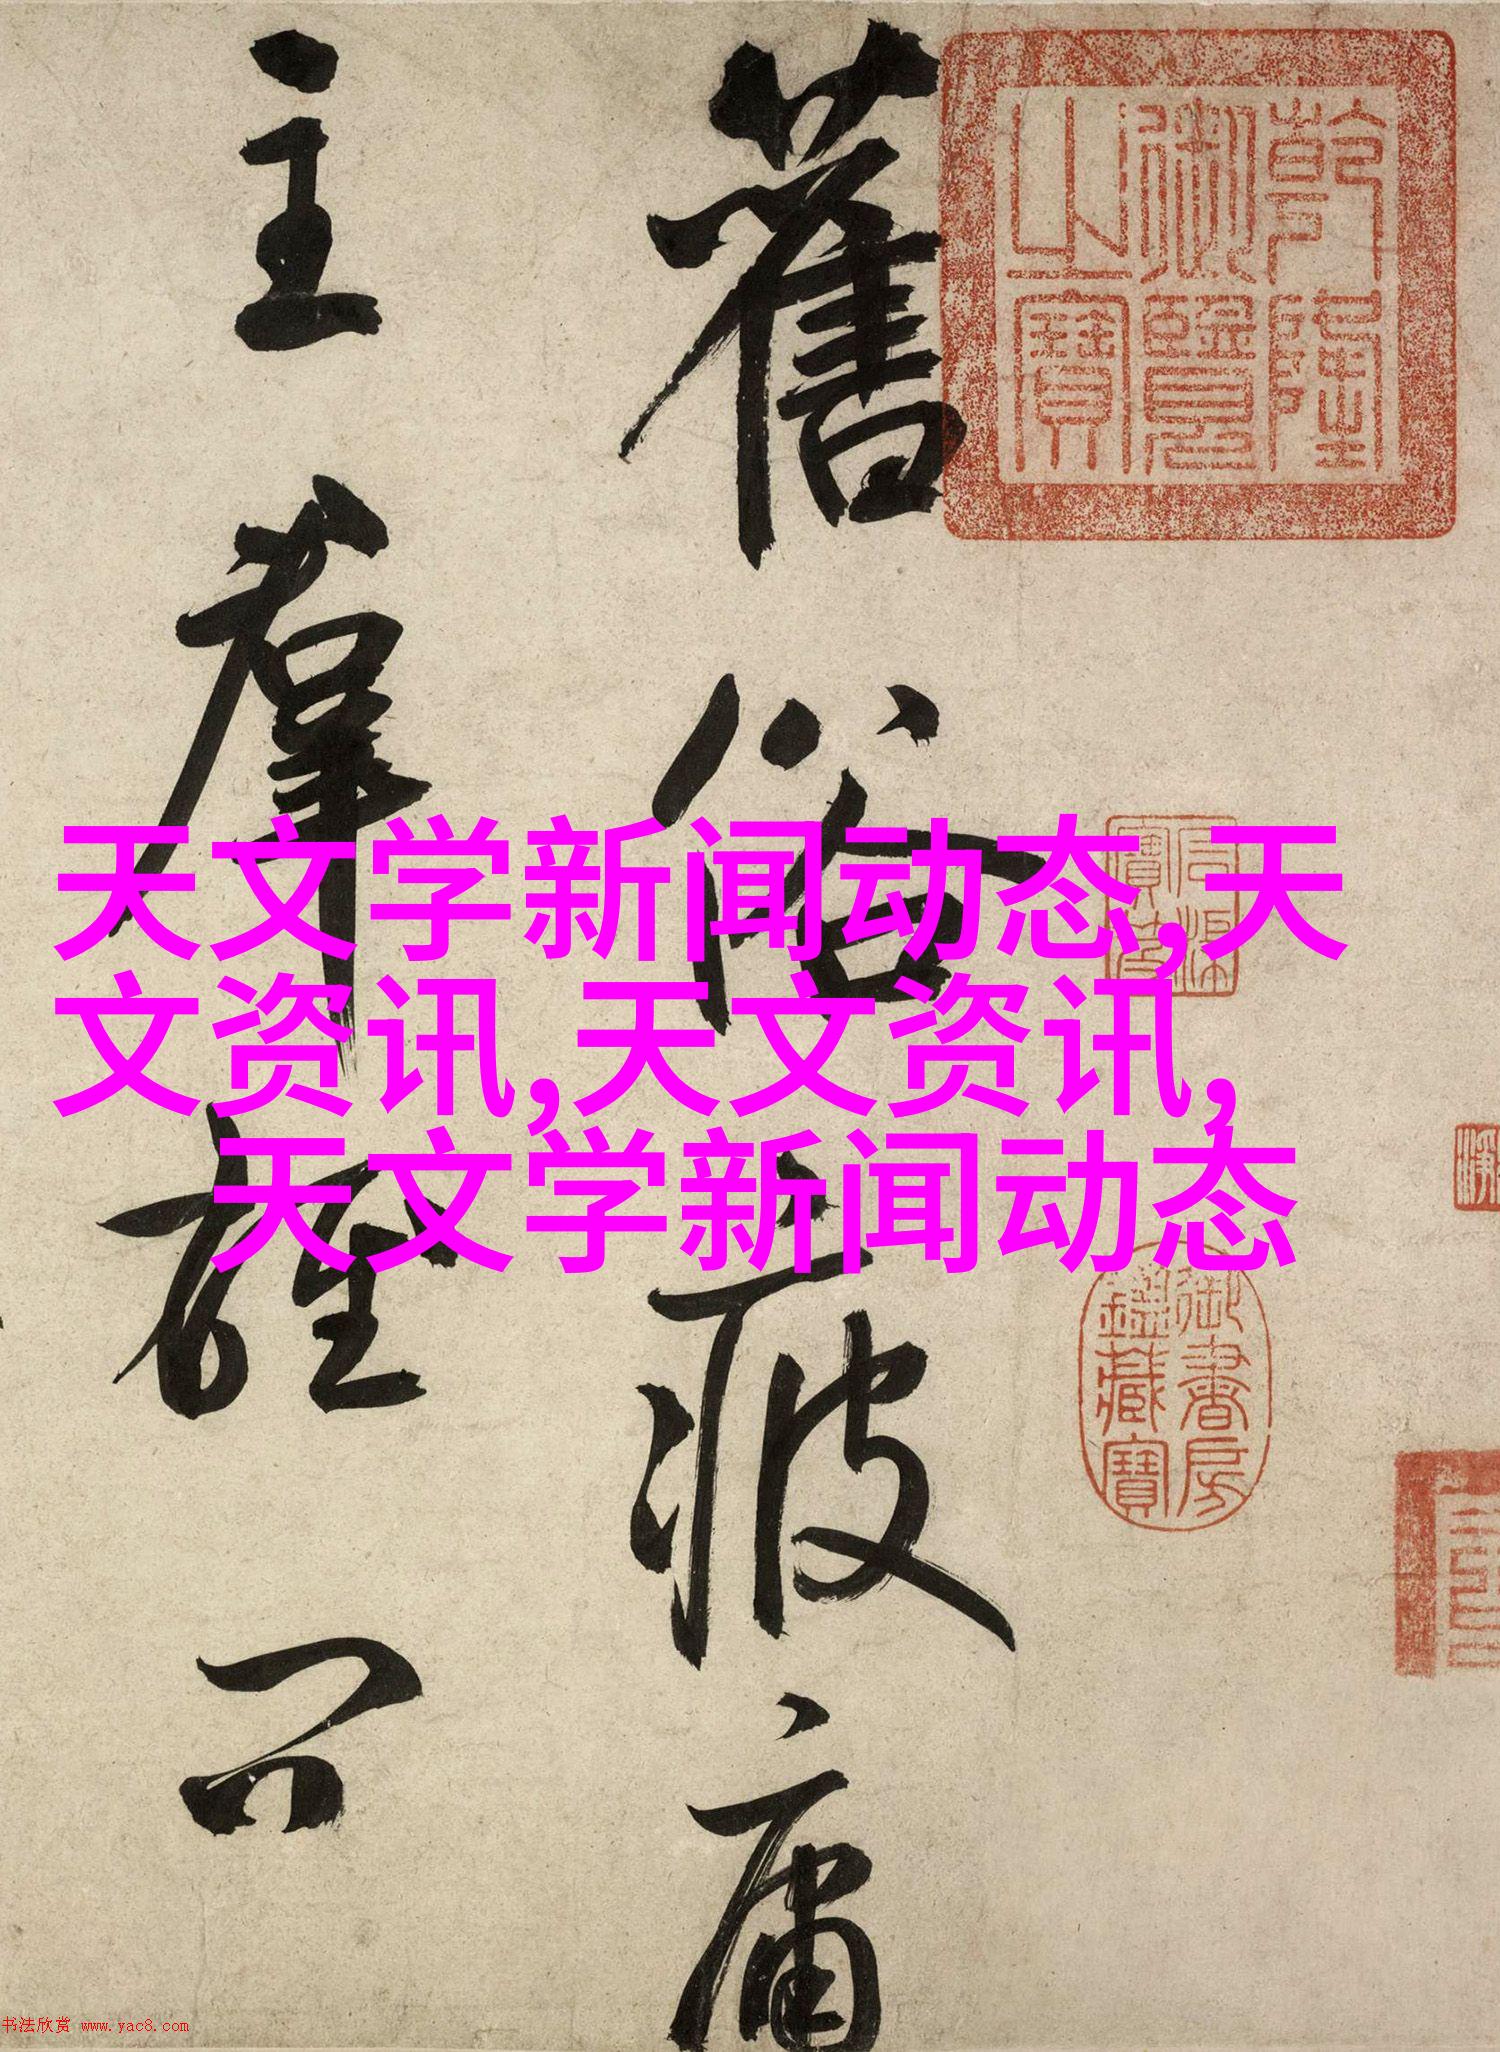 舊俗疲庸
主羣雄只
乾隆
御覽
之寶
天文学新闻动态,天
文资讯,天文资讯,
天文学新闻动态
御書房
鑑藏寶
书法欣赏 www.yac8.com